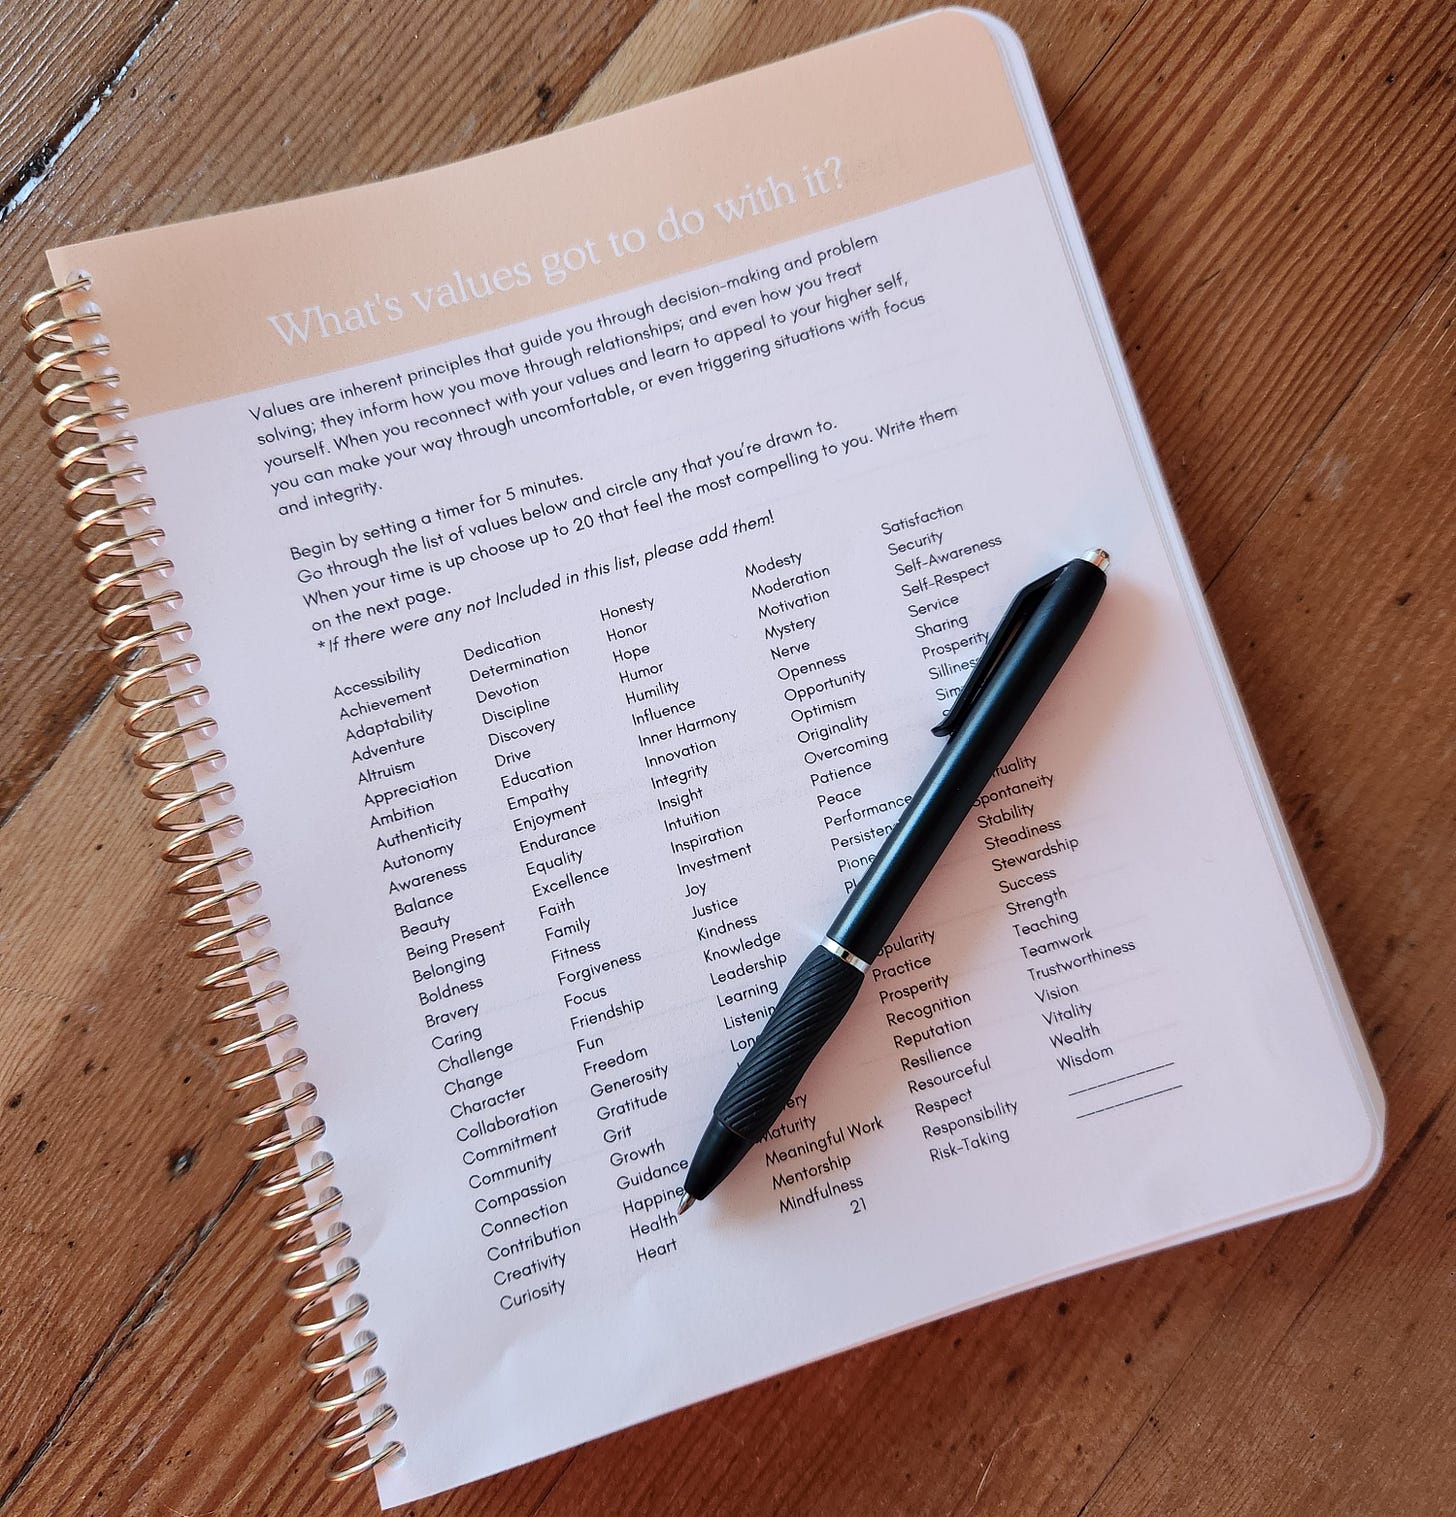 What's values got to do with it?
Values are inherent principles that guide you through decision-making and problem
solving; they inform how you move through relationships; and even how you treat
yourself. When you reconnect with your values and learn to appeal to your higher self,
you can make your way through uncomfortable, or even triggering situations with focus
and integrity.
Begin by setting a timer for 5 minutes.
Go through the list of values below and circle any that you're drawn to.
When your time is up choose up to 20 that feel the most compelling to you. Write them
on the next page.
*If there were any not Included in this list, please add them!
Accessibility
Achievement
Adaptability
Adventure
Altruism
Appreciation
Ambition
Authenticity
Autonomy
Awareness
Balance
Beauty
Being Present
Belonging
Boldness
Bravery
Caring
Challenge
Change
Character
Collaboration
Commitment
Community
Compassion
Connection
Contribution
Creativity
Curiosity
Dedication
Determination
Devotion
Discipline
Discovery
Drive
Education
Empathy
Enjoyment
Endurance
Equality
Excellence
Faith
Family
Fitness
Forgiveness
Focus
Friendship
Fun
Freedom
Generosity
Gratitude
Grit
Growth
Guidance
Happine
Health
Heart
Honesty
Honor
Hope
Humor
Humility
Influence
Inner Harmony
Innovation
Integrity
Insight
Intuition
Inspiration
Investment
Joy
Justice
Kindness
Knowledge
Leadership
Learning
Listenin
Lon
ery
Maturity
Meaningful Work
Mentorship
Mindfulness
Modesty
Moderation
Motivation
Mystery
Nerve
Openness
Opportunity
Optimism
Originality
Overcoming
Patience
Peace
Performance
Persisten
Pione
Pl
opularity
Practice
Prosperity
Recognition
Reputation
Resilience
Resourceful
Respect
Responsibility
Risk-Taking
Satisfaction
Security
Self-Awareness
Self-Respect
Service
Sharing
Prosperity
Silliness
Sim
uality
Spontaneity
Stability
Steadiness
Stewardship
Success
Strength
Teaching
Teamwork
Trustworthiness
Vision
Vitality
Wealth
Wisdom
21